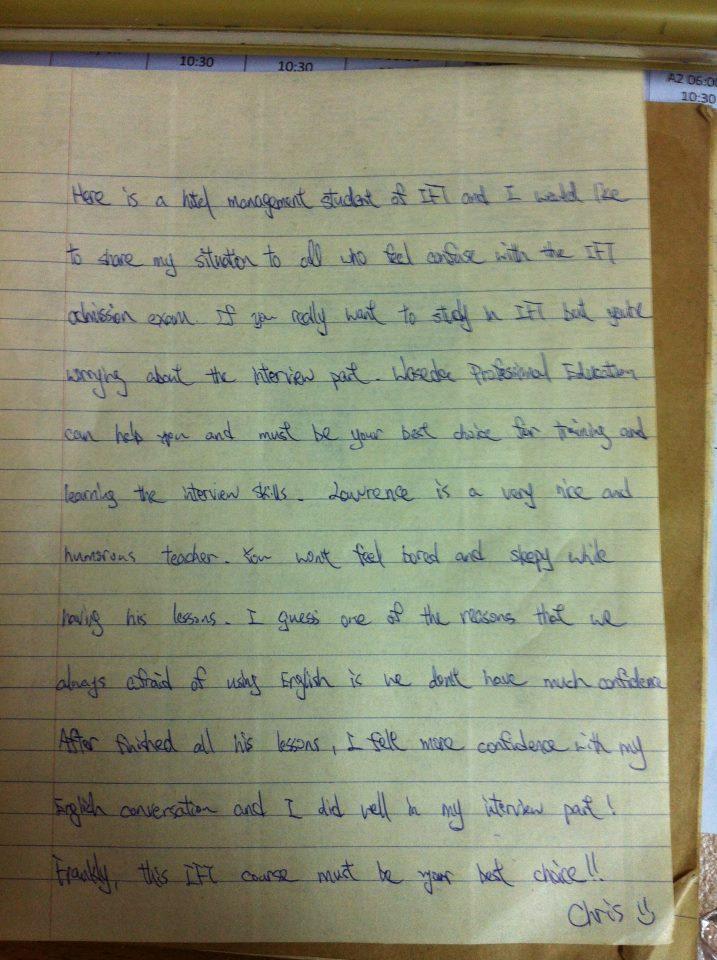 10:30
10:30
A2 06:00
10:30
Here is a hotel management student of IFT and I would like
to share my situation to all who feel confuse with the IFT
admission exam. If you really want to study in IFT but you're
worrying about the interview part. Waseda Professional Education
can help you and must be your best choice for training and
learning the interview skills. Lawrence is a very nice and
humorous teacher. You won't feel bored and sleepy while
having his lessons. I guess one of the reasons that we
always afraid of using English is we don't have much confidence
After finished all his lessons, I felt more confidence with my
English conversation and I did well in my interview part!
Frankly, this IFT course must be your best choice!!
Chris